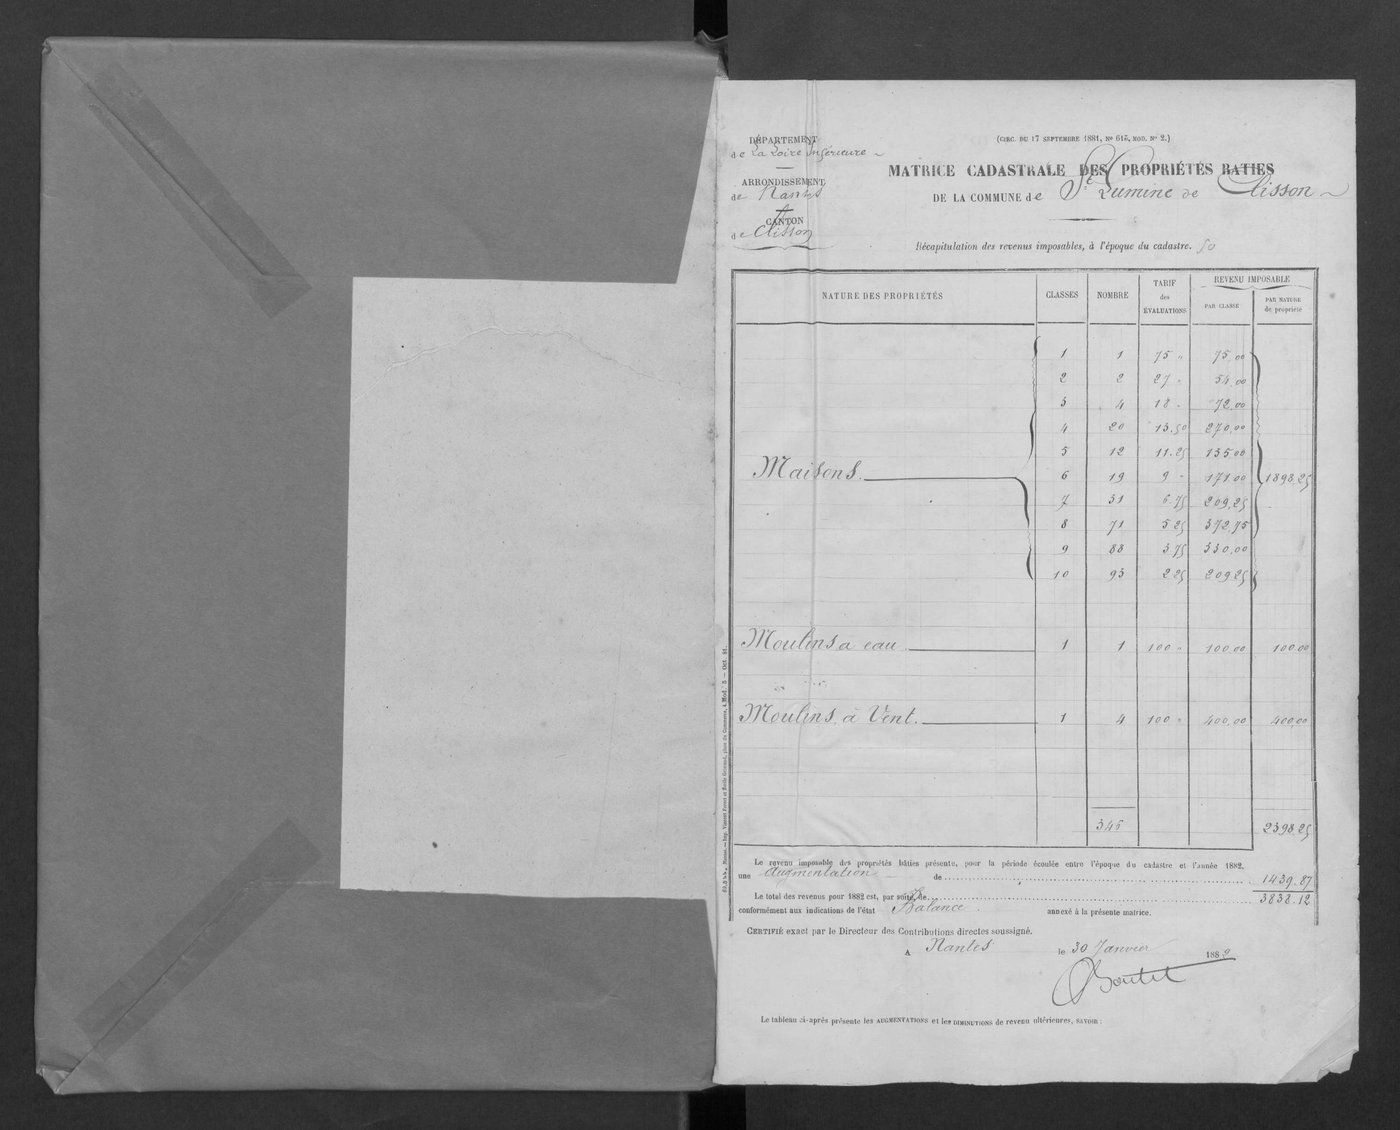 DÉPARTEMENT
de La Loire Inférieure
ARRONDISSEMENT
de Nantes
CANTON
de Clisson
(CIRC. DU 17 SEPTEMBRE 1881, No 615, MOD. No 2.)
MATRICE CADASTRALE DES PROPRIÉTÉS BATIES
DE LA COMMUNE de St Lumine de Clisson
Récapitulation des revenus imposables, à l'époque du cadastre.
NATURE DES PROPRIÉTÉS CLASSES NOMBRE TARIF des ÉVALUATIONS REVENU IMPOSABLE
PAR CLASSE PAR NATURE de propriété
1 1 75 " 75,00
2 2 27 " 54,00
3 4 18 " 72,00
4 20 13.50 270,00
5 12 11.25 135,00
Maisons. 6 19 9 " 171,00 1898,25
7 31 6.75 209,25
8 71 5 25 372,75
9 88 3 75 330,00
10 93 2 25 209 25
Moulins a eau. 1 1 100 " 100,00 100,00
Moulins à Vent. 1 4 100 " 400,00 400,00
346 2398,25
Le revenu imposable des propriétés bâties présente, pour la période écoulée entre l'époque du cadastre et l'année 1882,
une Augmentation de 1439.87
Le total des revenus pour 1882 est, par suite, de 3838.12
conformément aux indications de l'état Balance annexé à la présente matrice.
CERTIFIÉ exact par le Directeur des Contributions directes soussigné.
A Nantes le 30 Janvier 1882
Boutet
Le tableau ci-après présente les AUGMENTATIONS et les DIMINUTIONS de revenu ultérieures, SAVOIR :